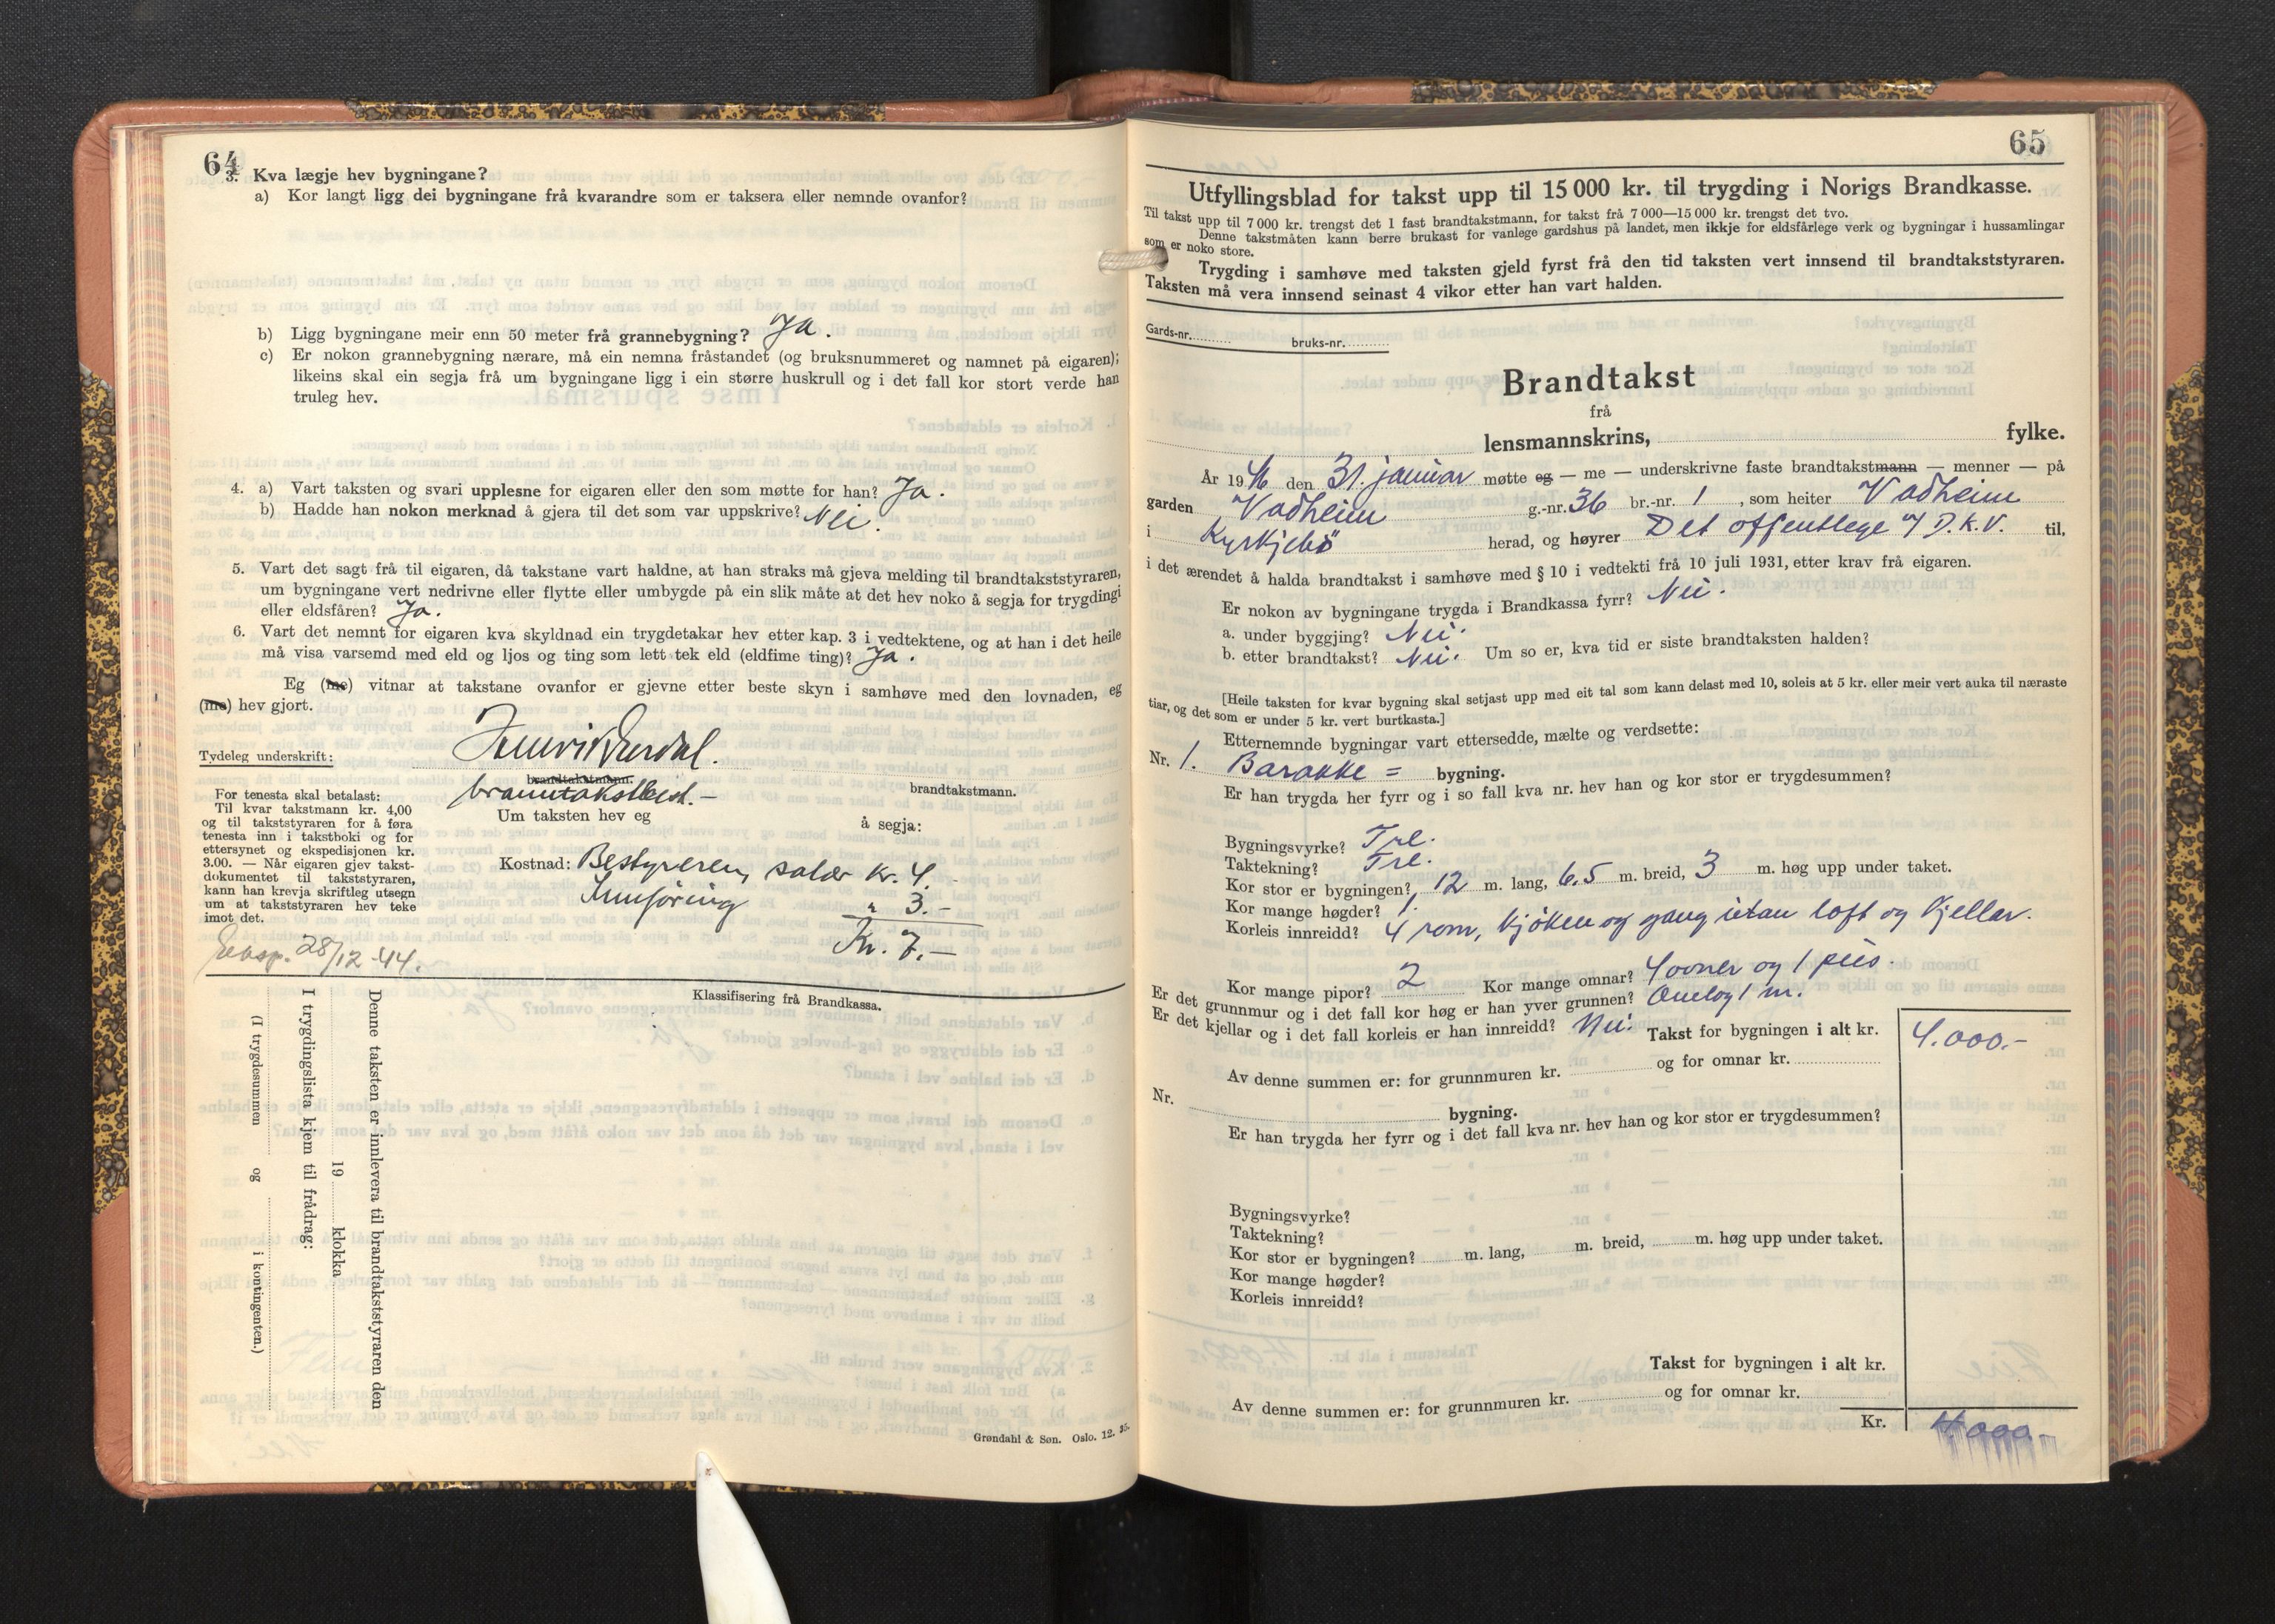 64
3. Kva lægje hev bygningane?
a) Kor langt ligg dei bygningane frå kvarandre som er taksera eller nemnde ovanfor?
b) Ligg bygningane meir enn 50 meter frå grannebygning? Ja.
c) Er nokon grannebygning nærare, må ein nemna fråstandet (og bruksnummeret og namnet på eigaren);
likeins skal ein segja frå um bygningane ligg i ein større huskrull og i det fall kor stort verde han
truleg hev.
4. a) Vart taksten og svari upplesne for eigaren eller den som møtte for han? Ja.
b) Hadde han nokon merknad å gjera til det som var uppskrive? Nei.
5. Vart det sagt frå til eigaren, då takstane vart haldne, at han straks må gjeva melding til brandtakststyraren,
um bygningane vert nedrivne eller flytte eller umbygde på ein slik måte at det hev noko å segja for trygdingi
eller eldsfåren? Ja.
6. Vart det nemnt for eigaren kva skyldnad ein trygdetakar hev etter kap. 3 i vedtektene, og at han i det heile
må visa varsemd med eld og ljos og ting som lett tek eld (eldfime ting)? Ja.
Eg (me) vitnar at takstane ovanfor er gjevne etter beste skyn i samhøve med den lovnaden, eg
(me) hev gjort.
Tydeleg underskrift:
brandtakstmann.
branntakstbest.-
brandtakstmann.
For tenesta skal betalast:
Til kvar takstmann kr. 4,00
og til takststyraren for å føra
tenesta inn i takstboki og for
ettersynet og ekspedisjonen kr.
3.00. — Når eigaren gjev takst-
dokumentet til takststyraren,
kann han krevja skriftleg utsegn
um at takststyraren hev teke
imot det.
Um taksten hev eg å segja:
Kostnad: Bestyreren, salær kr. 4.-
Innføring " 3.-
Kr. 7.-
Eksp. 28/12-44.
Klassifisering frå Brandkassa.
Denne taksten er innlevera til brandtakststyraren den
19 klokka
I trygdingslista kjem til frådrag:
(I trygdesummen og i kontingenten.)
Grøndahl & Søn. Oslo. 12. 35.
65
Utfyllingsblad for takst upp til 15 000 kr. til trygding i Norigs Brandkasse.
Til takst upp til 7 000 kr. trengst det 1 fast brandtakstmann, for takst frå 7 000—15 000 kr. trengst det tvo.
Denne takstmåten kann berre brukast for vanlege gardshus på landet, men ikkje for eldsfårlege verk og bygningar i hussamlingar
som er noko store.
Trygding i samhøve med taksten gjeld fyrst frå den tid taksten vert innsend til brandtakststyraren.
Taksten må vera innsend seinast 4 vikor etter han vart halden.
Gards-nr. bruks-nr.
Brandtakst
frå
lensmannskrins, fylke.
År 1946 den 31. januar møtte eg — me — underskrivne faste brandtakstmann — menner — på
garden Vadheim g.-nr. 36 br.-nr. 1, som heiter Vadheim
i Kyrkjebö herad, og høyrer Det offentlege v/ D.K.V. til,
i det ærendet å halda brandtakst i samhøve med § 10 i vedtekti frå 10 juli 1931, etter krav frå eigaren.
Er nokon av bygningane trygda i Brandkassa fyrr? Nei.
a. under byggjing? Nei.
b. etter brandtakst? Nei. Um so er, kva tid er siste brandtaksten halden?
[Heile taksten for kvar bygning skal setjast upp med eit tal som kann delast med 10, soleis at 5 kr. eller meir vert auka til næraste
tiar, og det som er under 5 kr. vert burtkasta.]
Etternemnde bygningar vart ettersedde, mælte og verdsette:
Nr. 1. Barakke = bygning.
Er han trygda her fyrr og i so fall kva nr. hev han og kor stor er trygdesummen?
Bygningsvyrke? Tre.
Taktekning? Tre.
Kor stor er bygningen? 12 m. lang, 6.5 m. breid, 3 m. høg upp under taket.
Kor mange høgder? 1.
Korleis innreidd? 4 rom, kjöken og gang utan loft og kjellar.
Kor mange pipor? 2 Kor mange omnar? 4 ovner og 1 peis.
Er det grunnmur og i det fall kor høg er han yver grunnen? Omlag 1 m.
Er det kjellar og i det fall korleis er han innreidd? Nei. Takst for bygningen i alt kr. 4.000.-
Av denne summen er: for grunnmuren kr. og for omnar kr.
Nr. bygning.
Er han trygda her fyrr og i det fall kva nr. hev han og kor stor er trygdesummen?
Bygningsvyrke?
Taktekning?
Kor stor er bygningen? m. lang, m. breid, m. høg upp under taket.
Kor mange høgder?
Korleis innreidd?
Takst for bygningen i alt kr.
Av denne summen er: for grunnmuren kr. og for omnar kr.
Kr. 4000.-